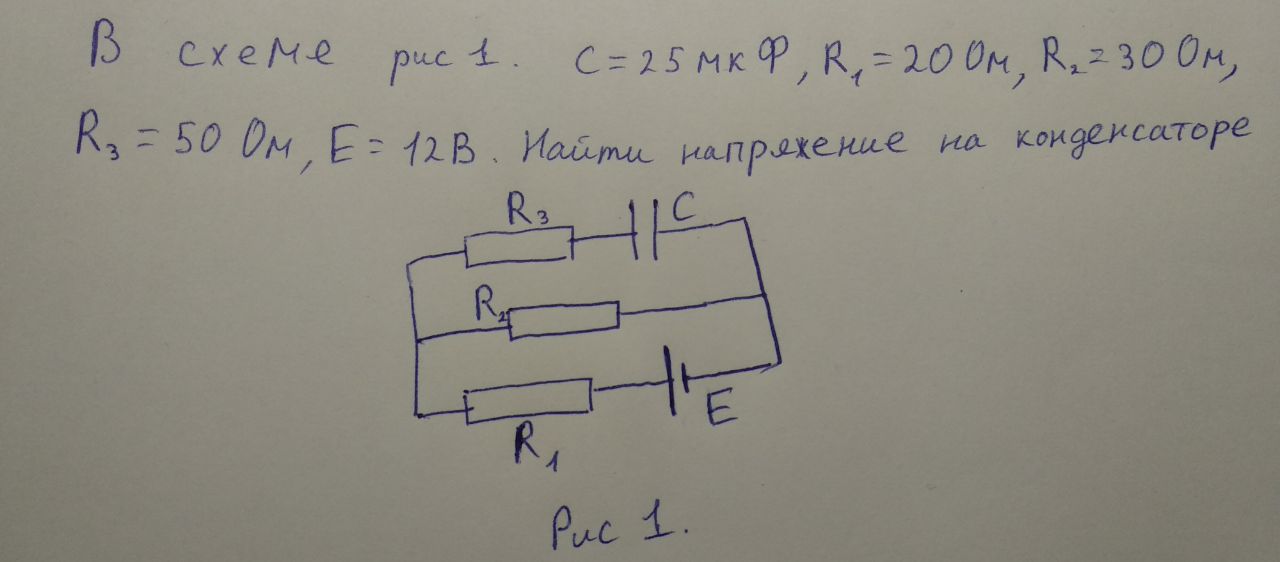 В схеме рис 1. C = 25 мкФ, R₁ = 20 Ом, R₂ = 30 Ом,
R₃ = 50 Ом, E = 12 В. Найти напряжение на конденсаторе
R₃ C
R₂
R₁ E
Рис 1.